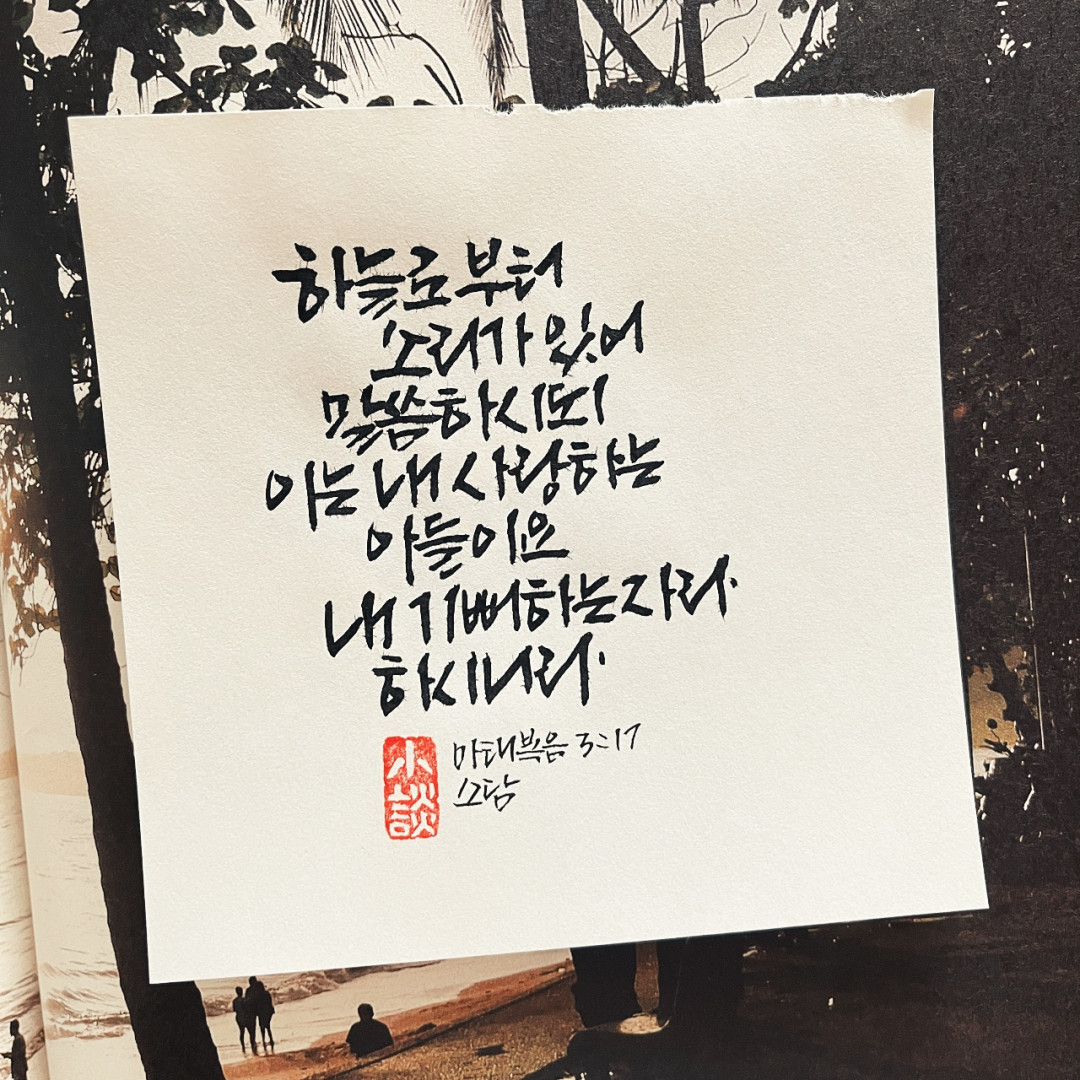 하늘로부터
소리가 있어
말씀하시되
이는 내 사랑하는
아들이요
내 기뻐하는 자라
하시니라.
小談
마태복음 3:17
소담